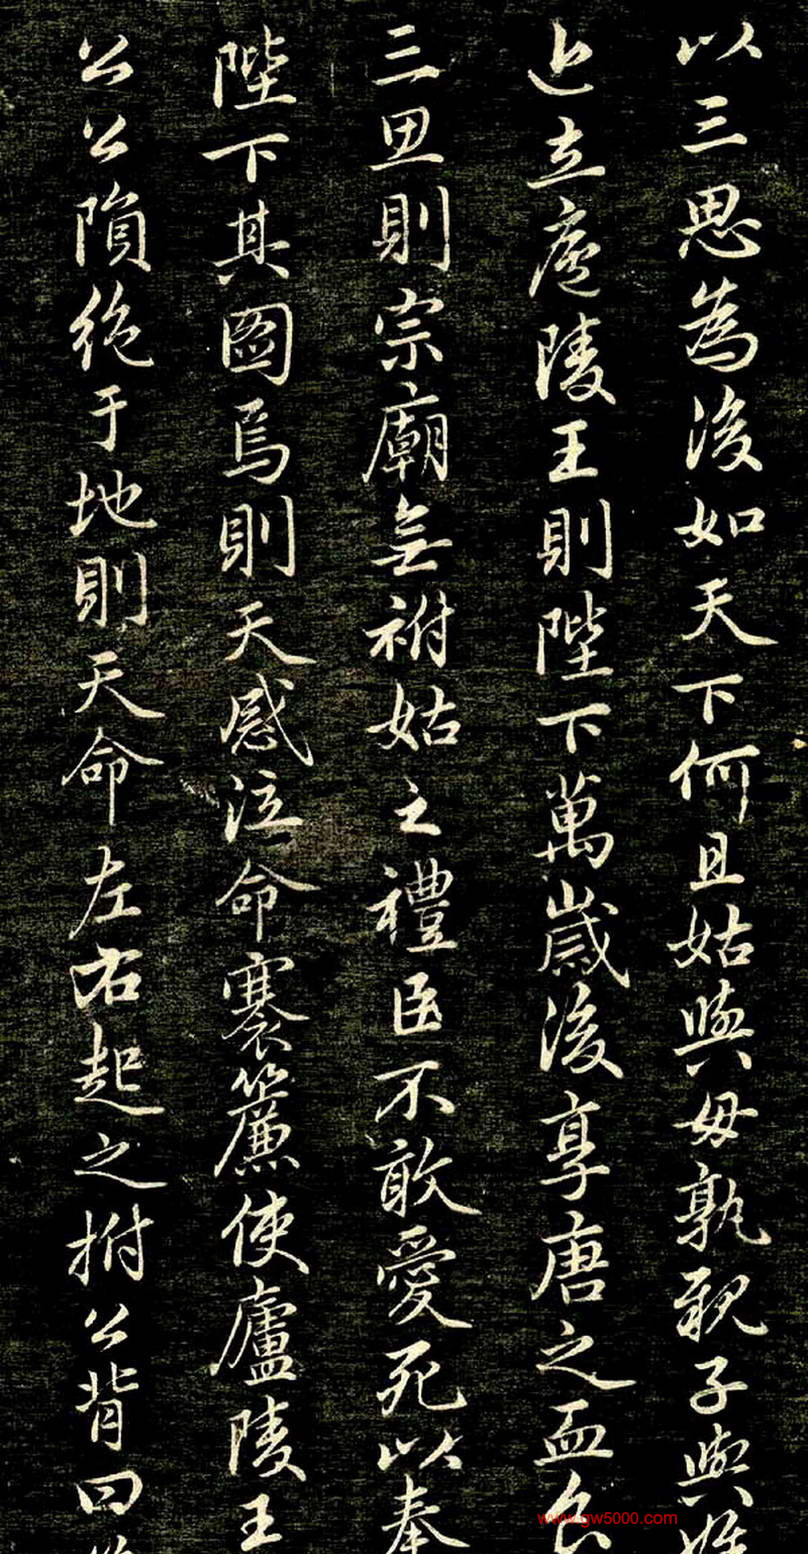 以三思為後如天下何且姑與母孰親子與
近立廬陵王則陛下萬歲後享唐之血食
三思則宗廟無祔姑之禮臣不敢愛死以奉
陛下其圖焉則天感泣命褰簾使廬陵王
公公隕絕于地則天命左右起之拊公背曰
www.gw5000.com